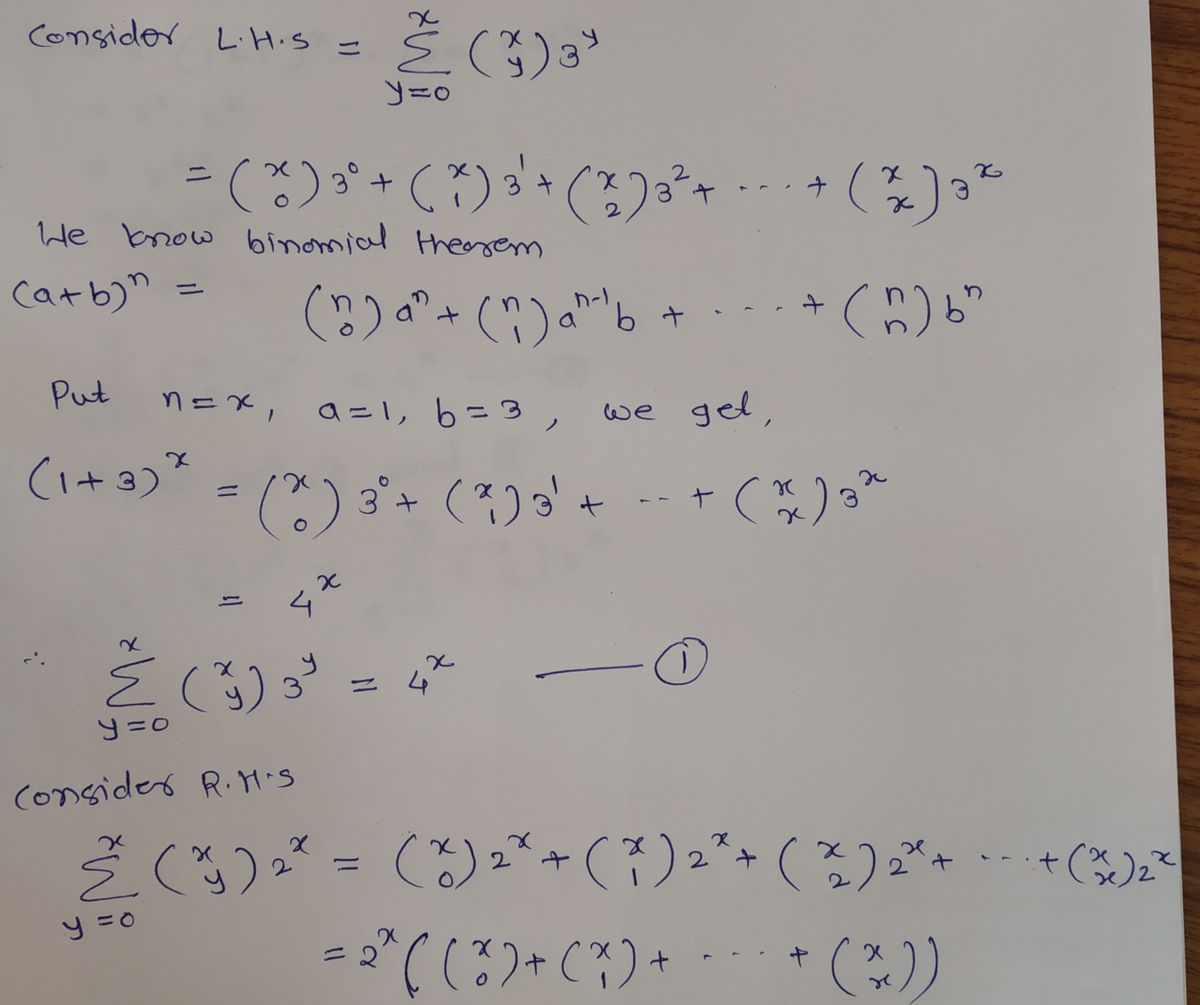 Consider L.H.S = \sum_{y=0}^{x} \binom{x}{y} 3^y
= \binom{x}{0} 3^0 + \binom{x}{1} 3^1 + \binom{x}{2} 3^2 + ---- + \binom{x}{x} 3^x
We know binomial theorem
(a+b)^n = \binom{n}{0} a^n + \binom{n}{1} a^{n-1} b + ---- + \binom{n}{n} b^n
Put n = x, a = 1, b = 3, we get,
(1+3)^x = \binom{x}{0} 3^0 + \binom{x}{1} 3^1 + -- + \binom{x}{x} 3^x
= 4^x
∴ \sum_{y=0}^{x} \binom{x}{y} 3^y = 4^x —— ①
Consider R.H.S
\sum_{y=0}^{x} \binom{x}{y} 2^x = \binom{x}{0} 2^x + \binom{x}{1} 2^x + \binom{x}{2} 2^x + --- + \binom{x}{x} 2^x
= 2^x ( \binom{x}{0} + \binom{x}{1} + ---- + \binom{x}{x} )